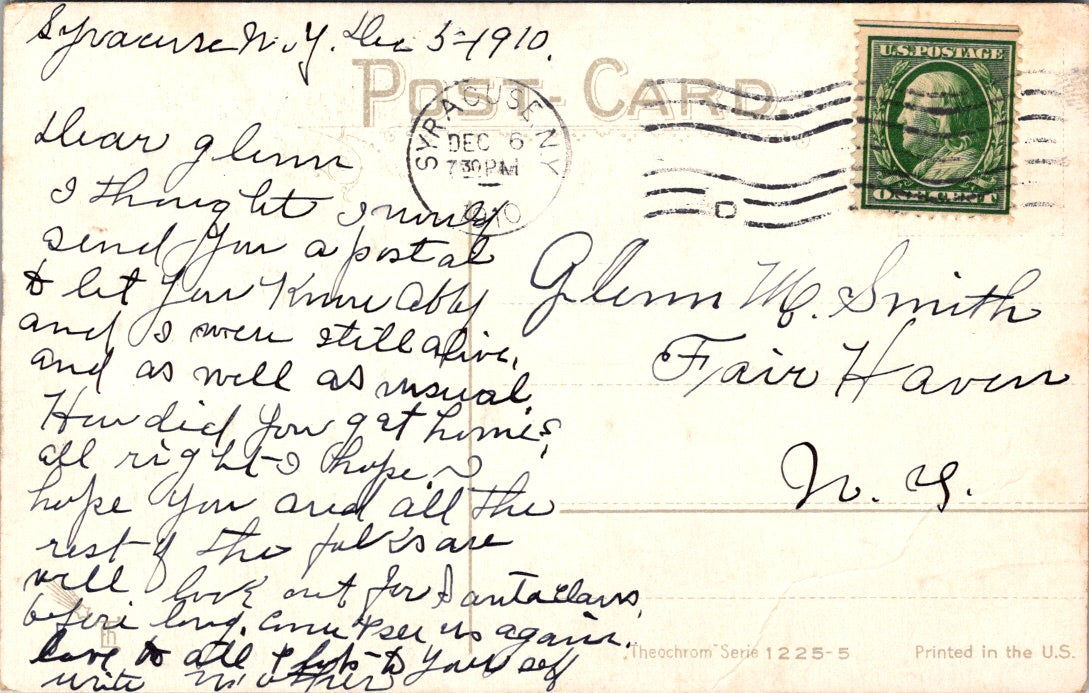 Syracuse N.Y. Dec 5-1910.
POST CARD
U.S. POSTAGE
ONE CENT
SYRACUSE NY
DEC 6
7 30 PM
1910
Dear Glenn
I thought I would
send you a postal
to let you know
and I were still alive,
and as well as usual.
How did you get home,
all right I hope. I
hope you and all the
rest of the folks are
well look out for Santaclaus
before long. Come & see us again.
love to all & to yourself
write
Glenn M. Smith
Fair Haven
N. Y.
"Theochrom" Serie 1225-5
Printed in the U.S.